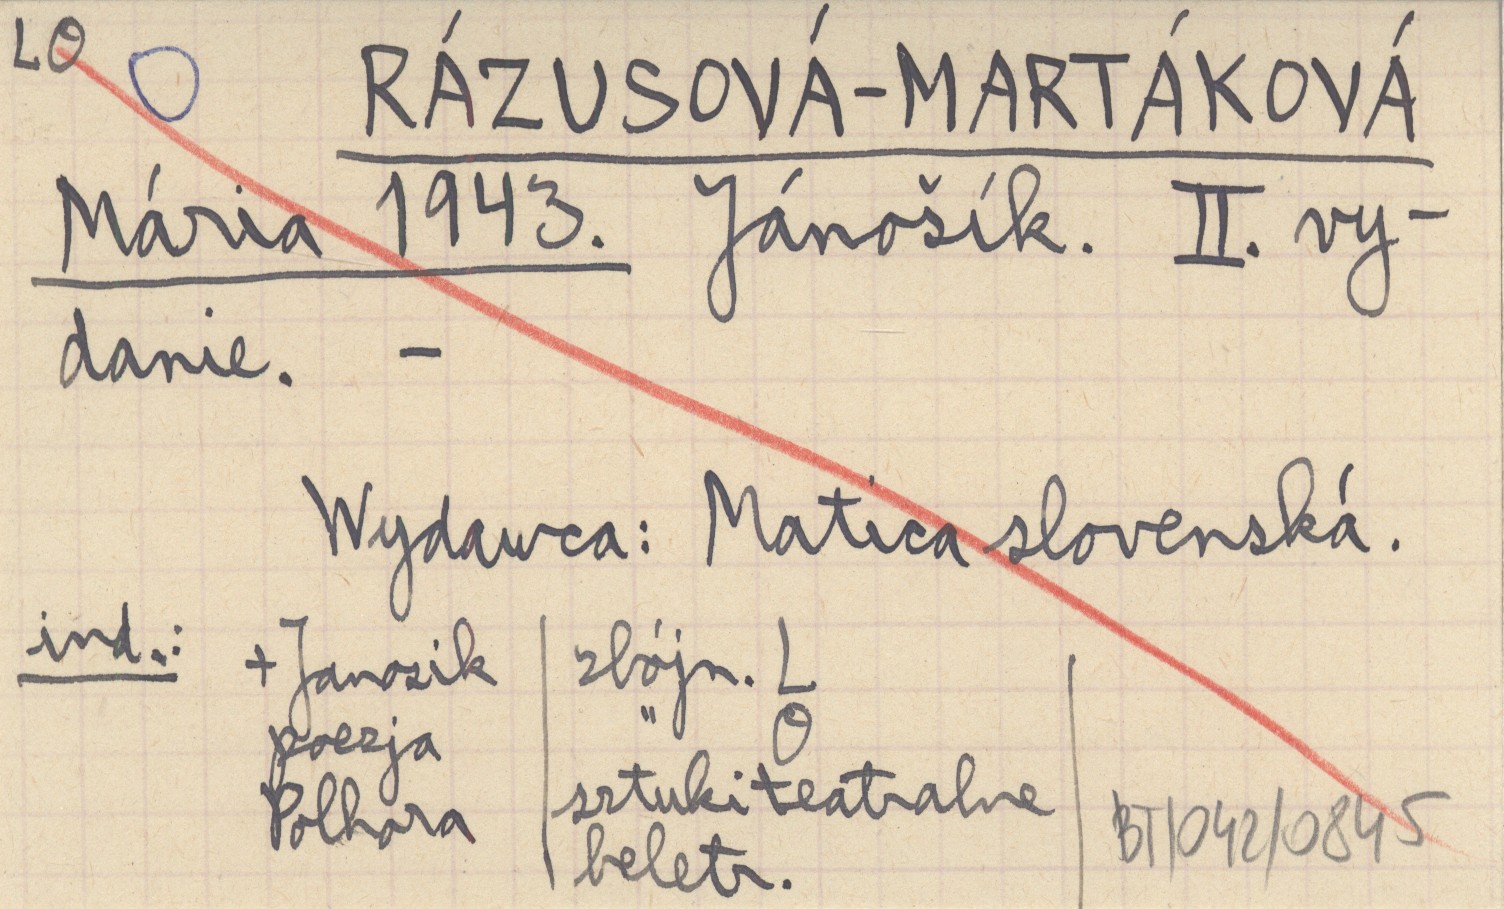 LO
RÁZUSOVÁ-MARTÁKOVÁ
Mária 1943. Jánošík. II. vy-
danie. -
Wydawca: Matica slovenská.
ind.: + Janosik zbójn. L
poezja " O
Polhora sztuki teatralne
beletr.
BT/042/0845